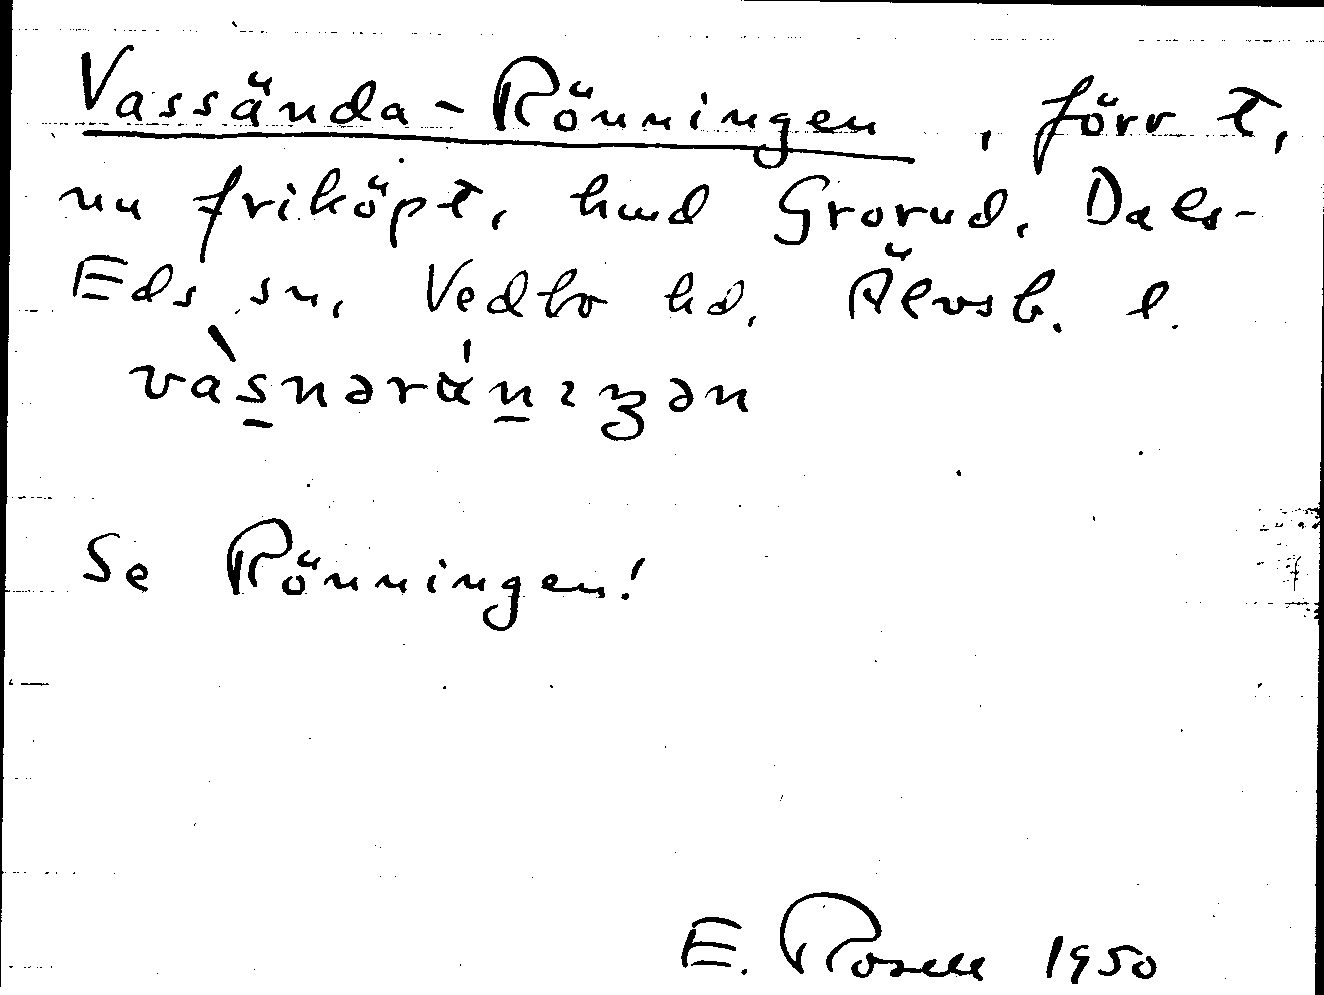 Vassända-Rönningen, förr t,
nu friköpt, hmd Grorud, Dals-
Eds sn, Vedbo hd, Älvsb. l.
vàs̲nərά́n̲ɪŋən
Se Rönningen!
E. Rosell 1950